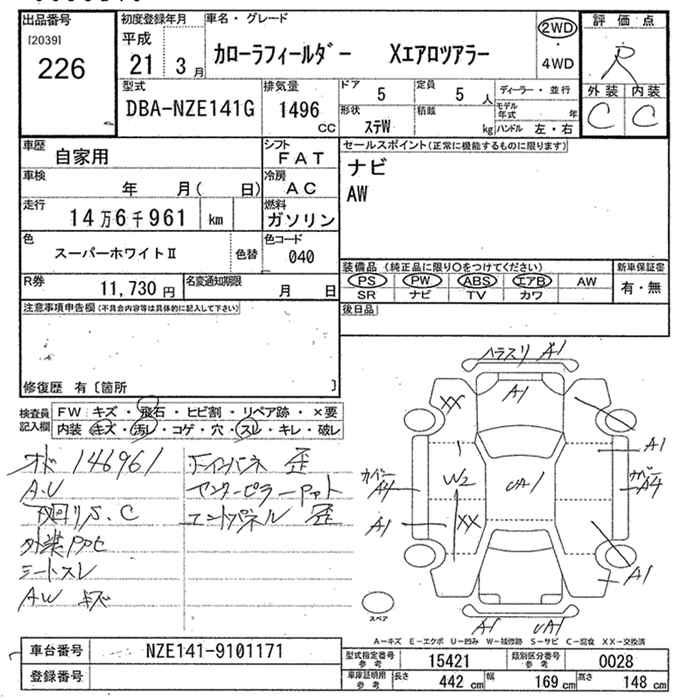 出品番号
[2039]
226
初度登録年月
平成
21 3 月
車名・グレード
カローラフィールダー Xエアロツアラー
2WD
・
4WD
評価点
R
外装 内装
C C
型式
DBA-NZE141G
排気量
1496
CC
ドア 5
定員 5 人
形状 ステW
積載 kg
ディーラー・並行
モデル年式 年
ハンドル 左・右
車歴
自家用
シフト
FAT
車検
年 月( 日)
冷房
AC
走行
14万6千961 km
燃料
ガソリン
色
スーパーホワイトⅡ
色替
色コード
040
R券
11,730 円
名変通知期限
月 日
セールスポイント(正常に機能するものに限ります)
ナビ
AW
装備品(純正品に限り○をつけてください)
PS PW ABS エアB AW
SR ナビ TV カワ
新車保証書
有・無
後日品
注意事項申告欄(不具合内容等は具体的に記入して下さい)
修復歴 有〔箇所 〕
検査員記入欄
FW:キズ・飛石・ヒビ割・リペア跡・×要
内装:キズ・汚レ・コゲ・穴・スレ・キレ・破レ
146961
A.U
S.C
シートスレ
AW キズ
歪
センターピラー
エンドパネル 歪
A1
A1
XX
A1
W2
UA1
カバー
A4
A4
A1
XX
A1
A1
UA1
スペア
A-キズ E-エクボ U-凹み W-補修跡 S-サビ C-腐食 XX-交換済
車台番号
NZE141-9101171
登録番号
型式指定番号
参考
15421
類別区分番号
参考
0028
車庫証明用
参考
長さ 442 cm
幅 169 cm
高さ 148 cm